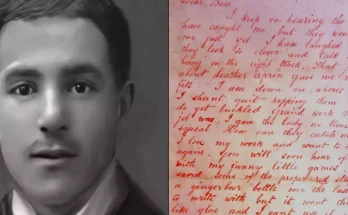 Dear Boss
I keep on hearing the
have caught me but they won
me just yet. I have laughed
they look so clever and talk
being on the right track. That
about Leather apron gave me
fits I am down on whores
I shant quit ripping them
do get buckled Grand work the
job was. I gave the lady no time
squeal How can they catch me
I love my work and want to
again. You will soon hear of
with my funny little games
saved some of the proper red
a ginger beer bottle over the last
to write with but it went th
like glue and I cant use it